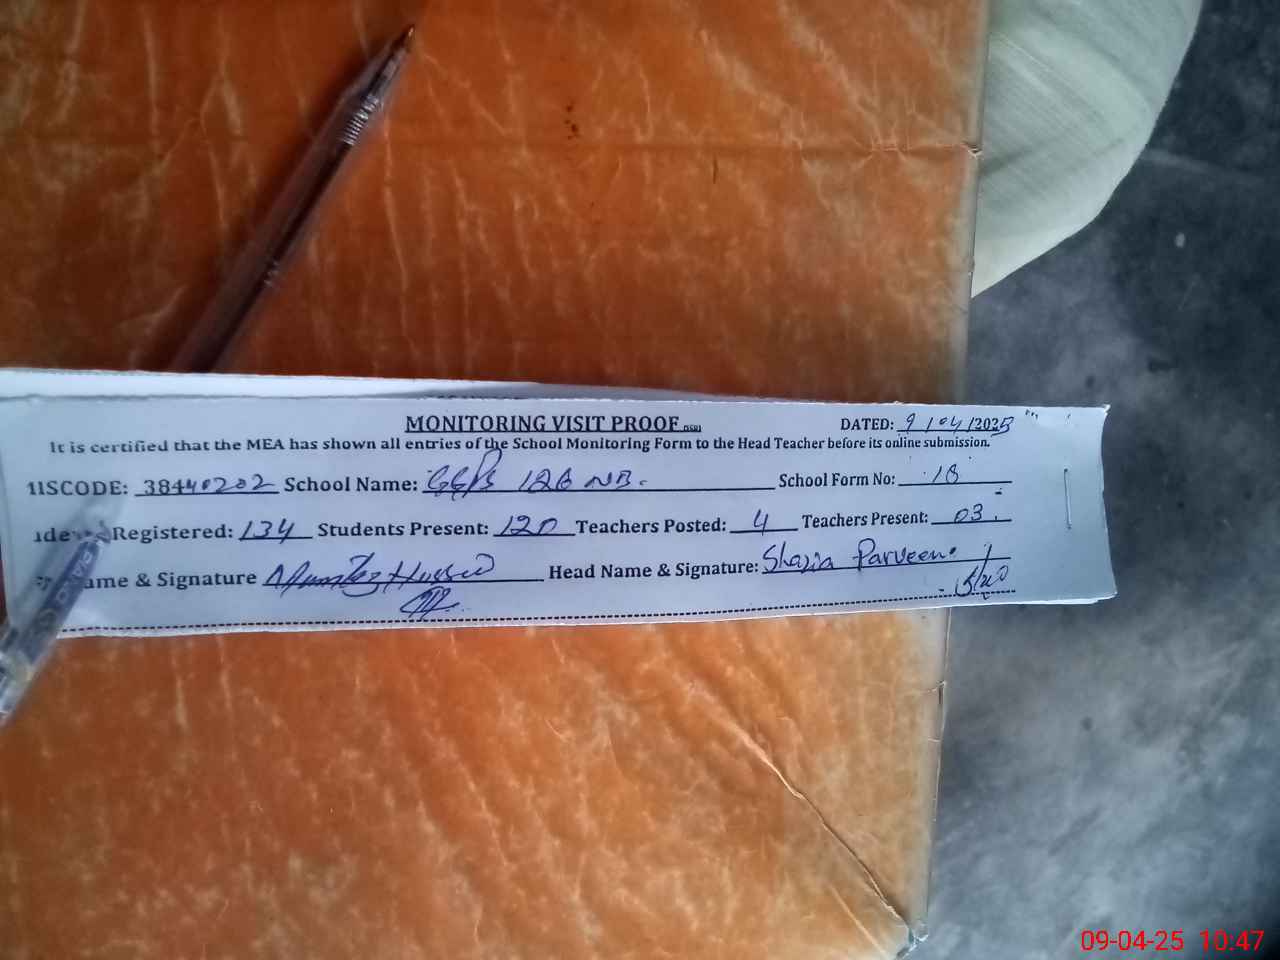 MONITORING VISIT PROOF DATED: 9/04/2025
It is certified that the MEA has shown all entries of the School Monitoring Form to the Head Teacher before its online submission.
SCODE: 38440202 School Name: GGPS 126 NB. School Form No: 18
Registered: 134 Students Present: 120 Teachers Posted: 4 Teachers Present: 03.
ame & Signature Hussain Head Name & Signature: Shazia Parveen.
09-04-25 10:47